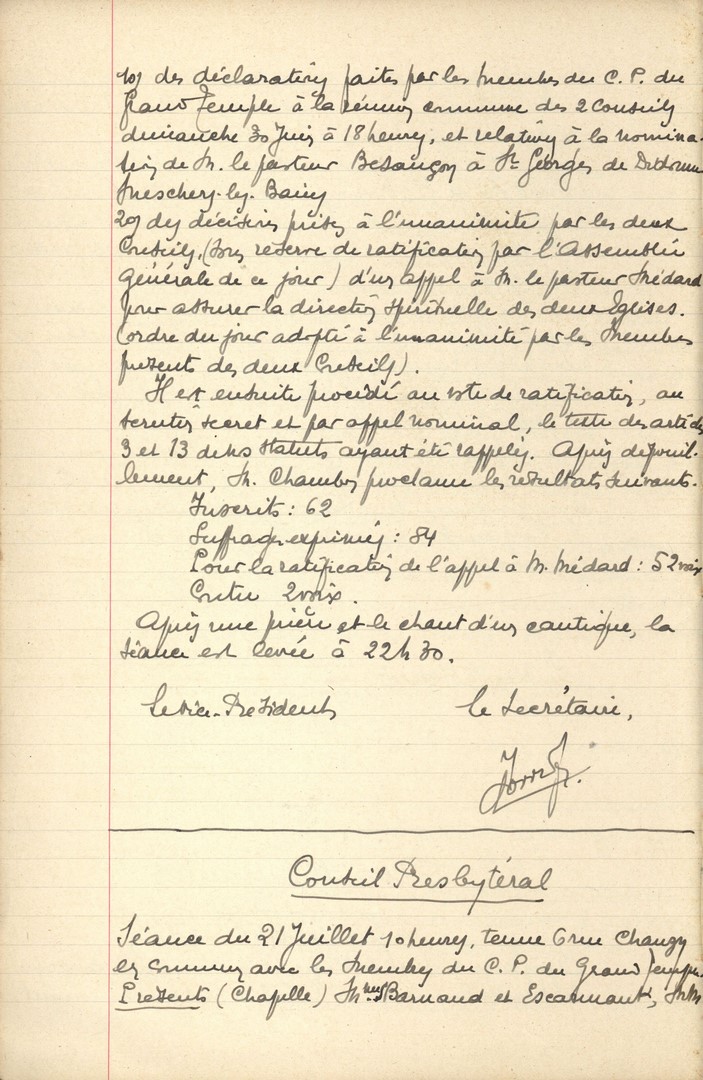 1o) des déclarations faites par les membres du C. P. du
Grand Temple à la réunion commune des 2 Conseils
dimanche 30 Juin à 18 heures, et relatives à la nomina-
tion de M. le pasteur Besançon à St Georges de Didonne
Meschers-les-Bains
2o) des décisions prises à l'unanimité par les deux
Conseils, (sous réserve de ratification par l'Assemblée
générale de ce jour) d'un appel à M. le pasteur Médard
pour assurer la direction spirituelle des deux Eglises.
(ordre du jour adopté à l'unanimité par les membres
présents des deux Conseils).
Il est ensuite procédé au vote de ratification, au
scrutin secret et par appel nominal, le texte des articles
3 et 13 de nos statuts ayant été rappelés. Après dépouil-
lement, M. Chambon proclame les résultats suivants.
Inscrits : 62
Suffrages exprimés : 84
Pour la ratification de l'appel à M. Médard : 52 voix
Contre 2 voix.
Après une prière et le chant d'un cantique, la
séance est levée à 22h30.
Le Vice-Président, le Secrétaire,
Conseil Presbytéral
Séance du 21 Juillet 10 heures, tenue 6 rue Changy
en commun avec les membres du C. P. du Grand Temple
Présents (Chapelle) Mmes Barnaud et Escarmant, MM